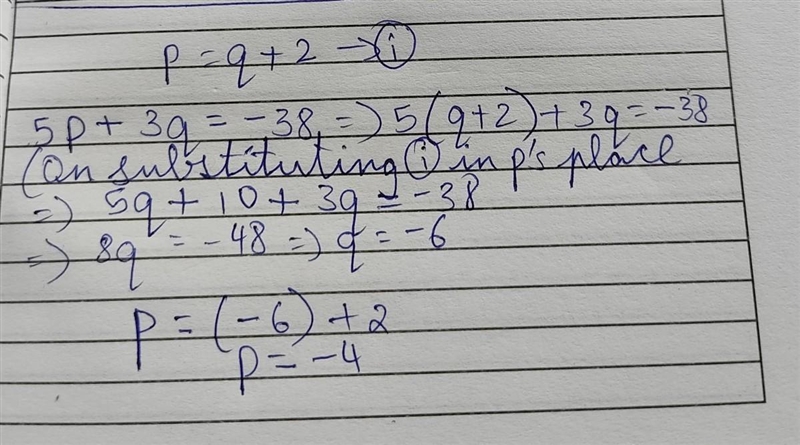 p = q + 2 → ⓘ
5p + 3q = -38, => 5(q+2) + 3q = -38
(On substituting ⓘ in p's place
=> 5q + 10 + 3q = -38
=> 8q = -48 => q = -6
p = (-6) + 2
p = -4